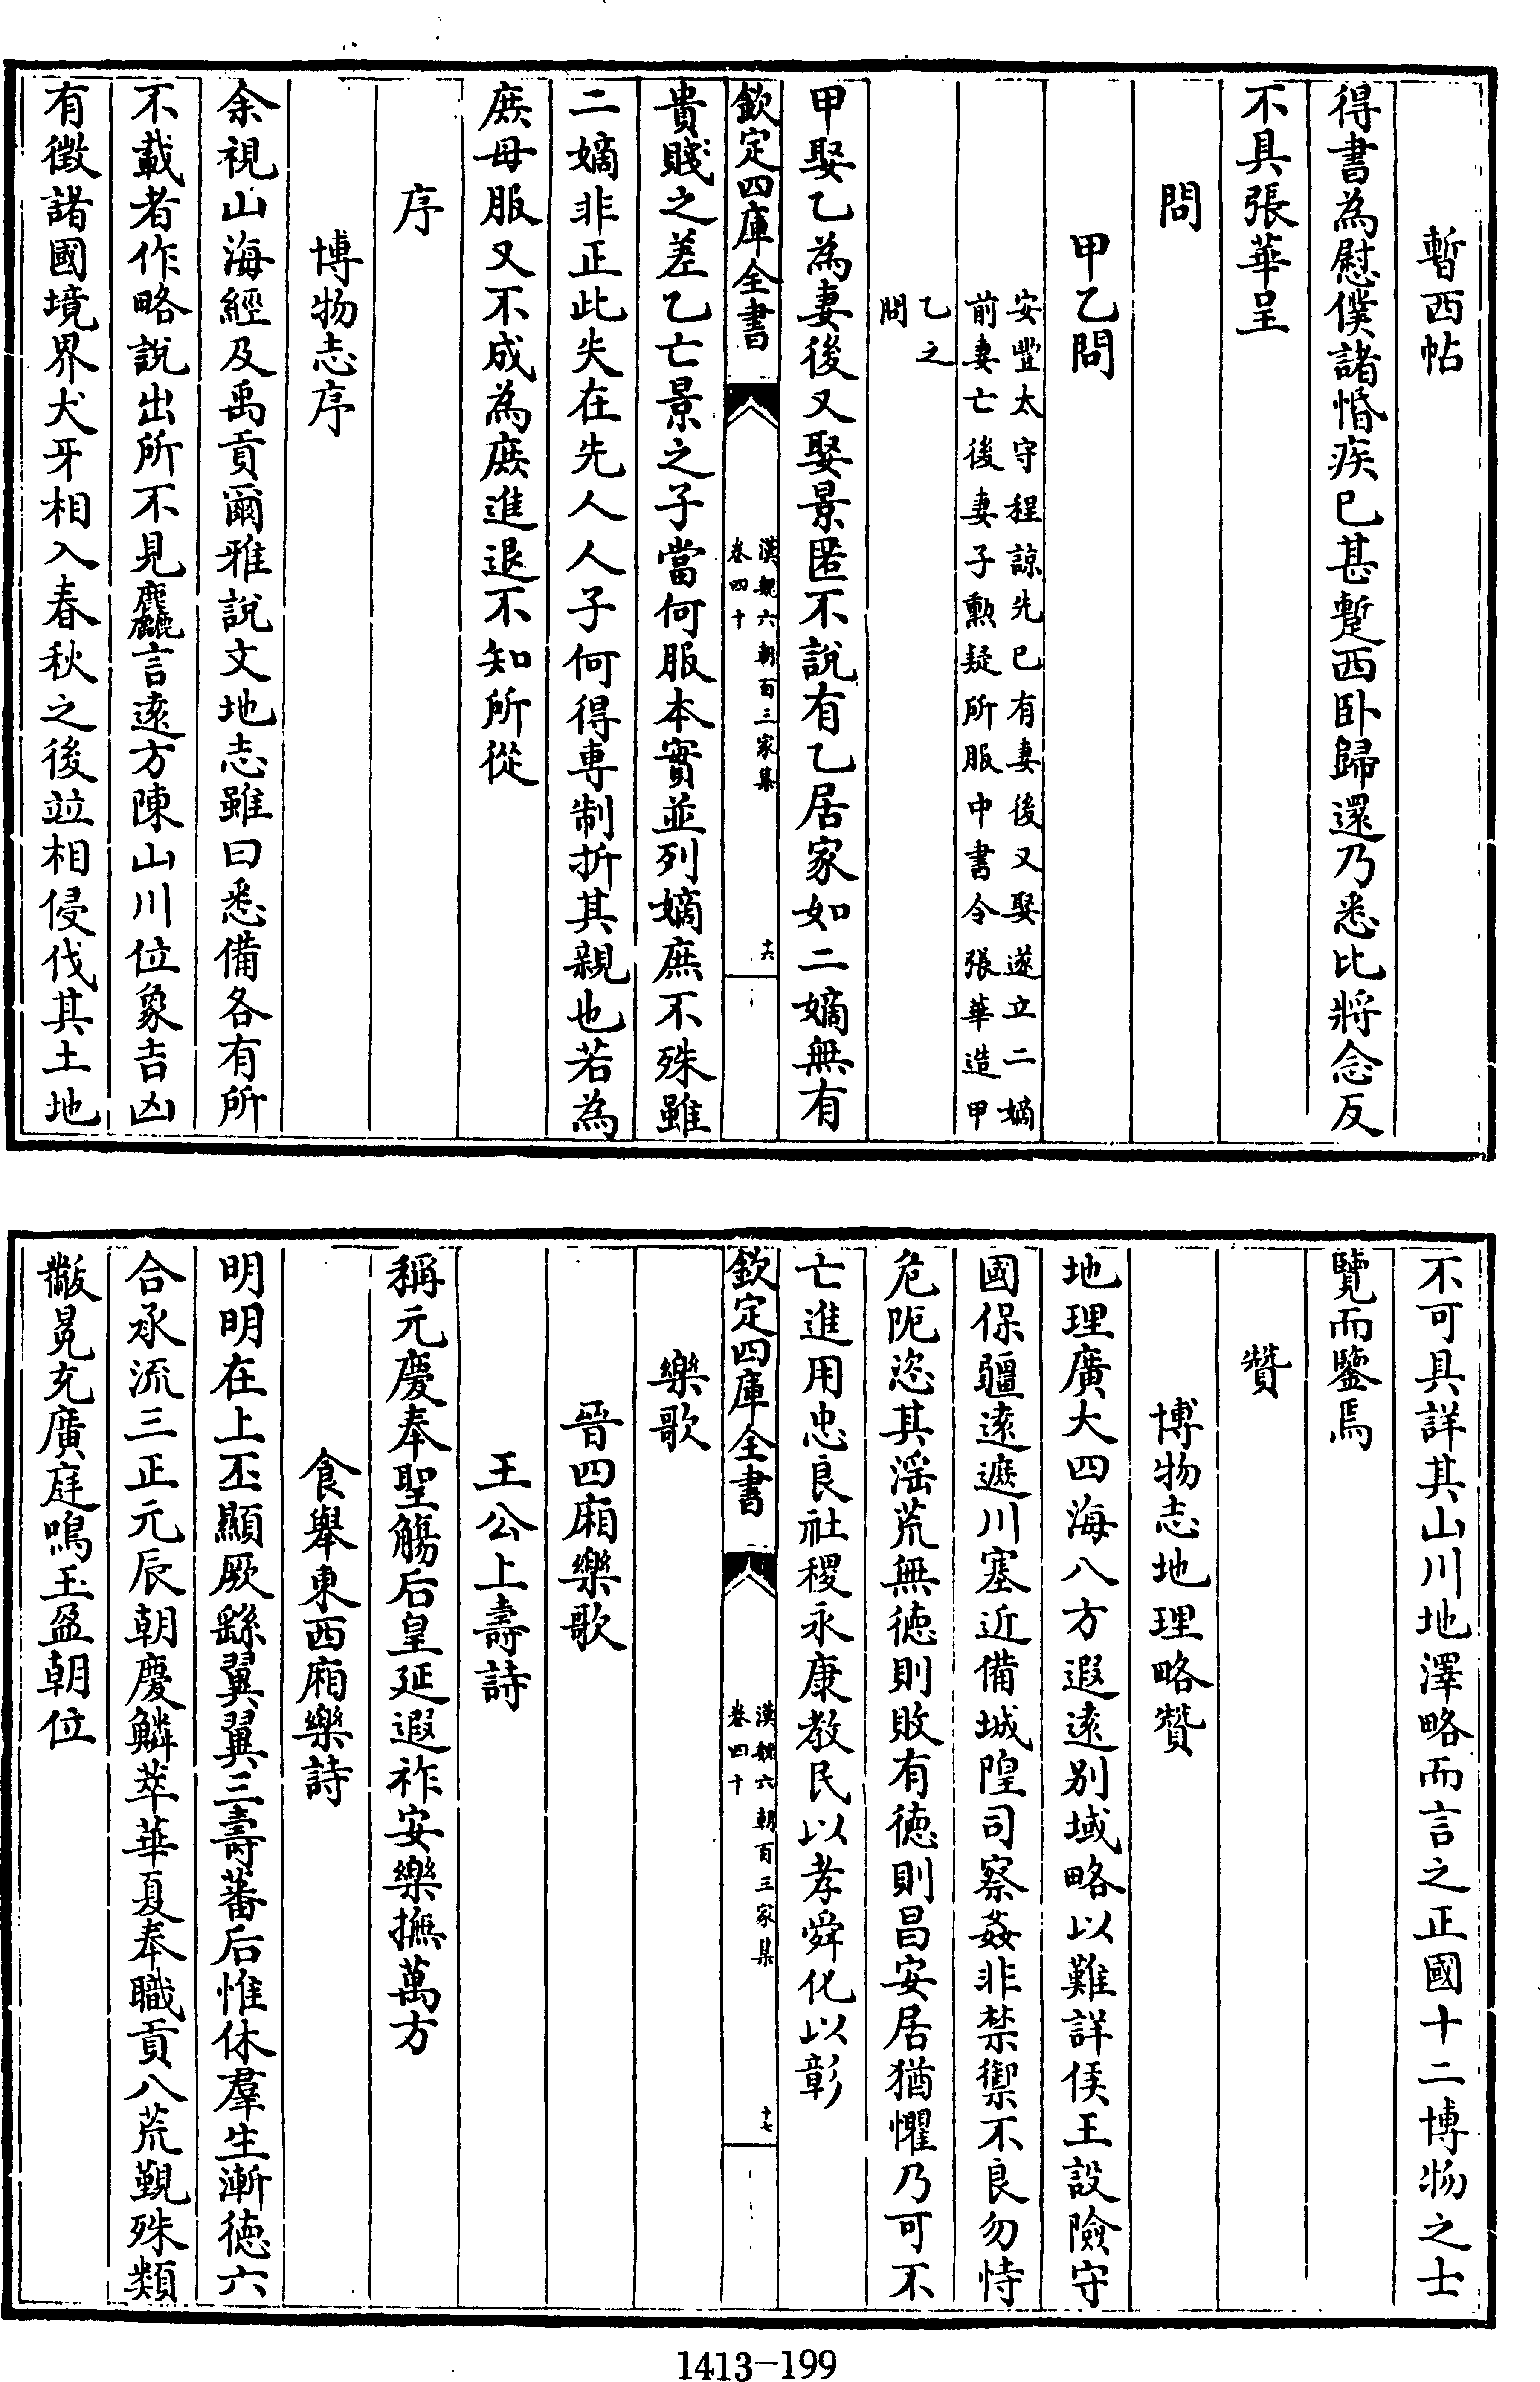 暫西帖
得書為慰僕諸惛疾已甚蹔西卧歸還乃悉比將念反
不具張華呈
問
甲乙問
安豐太守程諒先已有妻後又娶遂立二嫡
前妻亡後妻子勲疑所服中書令張華造甲
乙之
問
甲娶乙為妻後又娶景匿不說有乙居家如二嫡無有
欽定四庫全書
漢魏六朝百三家集
卷四十
十六
貴賤之差乙亡景之子當何服本實並列嫡庶不殊雖
二嫡非正此失在先人人子何得專制折其親也若為
庶母服又不成為庶進退不知所從
序
博物志序
余視山海經及禹貢爾雅說文地志雖曰悉備各有所
不載者作略說出所不見麤言逺方陳山川位象吉凶
有徵諸國境界犬牙相入春秋之後竝相侵伐其土地
不可具詳其山川地澤略而言之正國十二博物之士
覽而鑒焉
贊
博物志地理略贊
地理廣大四海八方遐逺别域略以難詳侯王設險守
國保疆逺遮川塞近備城隍司察姦非禁禦不良勿恃
危阨恣其淫荒無徳則敗有徳則昌安居猶懼乃可不
亡進用忠良社稷永康教民以孝舜化以彰
欽定四庫全書
漢魏六朝百三家集
卷四十
十七
樂歌
晉四廂樂歌
王公上壽詩
稱元慶奉聖觴后皇延遐祚安樂撫萬方
食舉東西廂樂詩
明明在上丕顯厥繇翼翼三壽蕃后惟休羣生漸徳六
合承流三正元辰朝慶鱗萃華夏奉職貢八荒覲殊類
黻冕充廣庭鳴玉盈朝位
1413-199